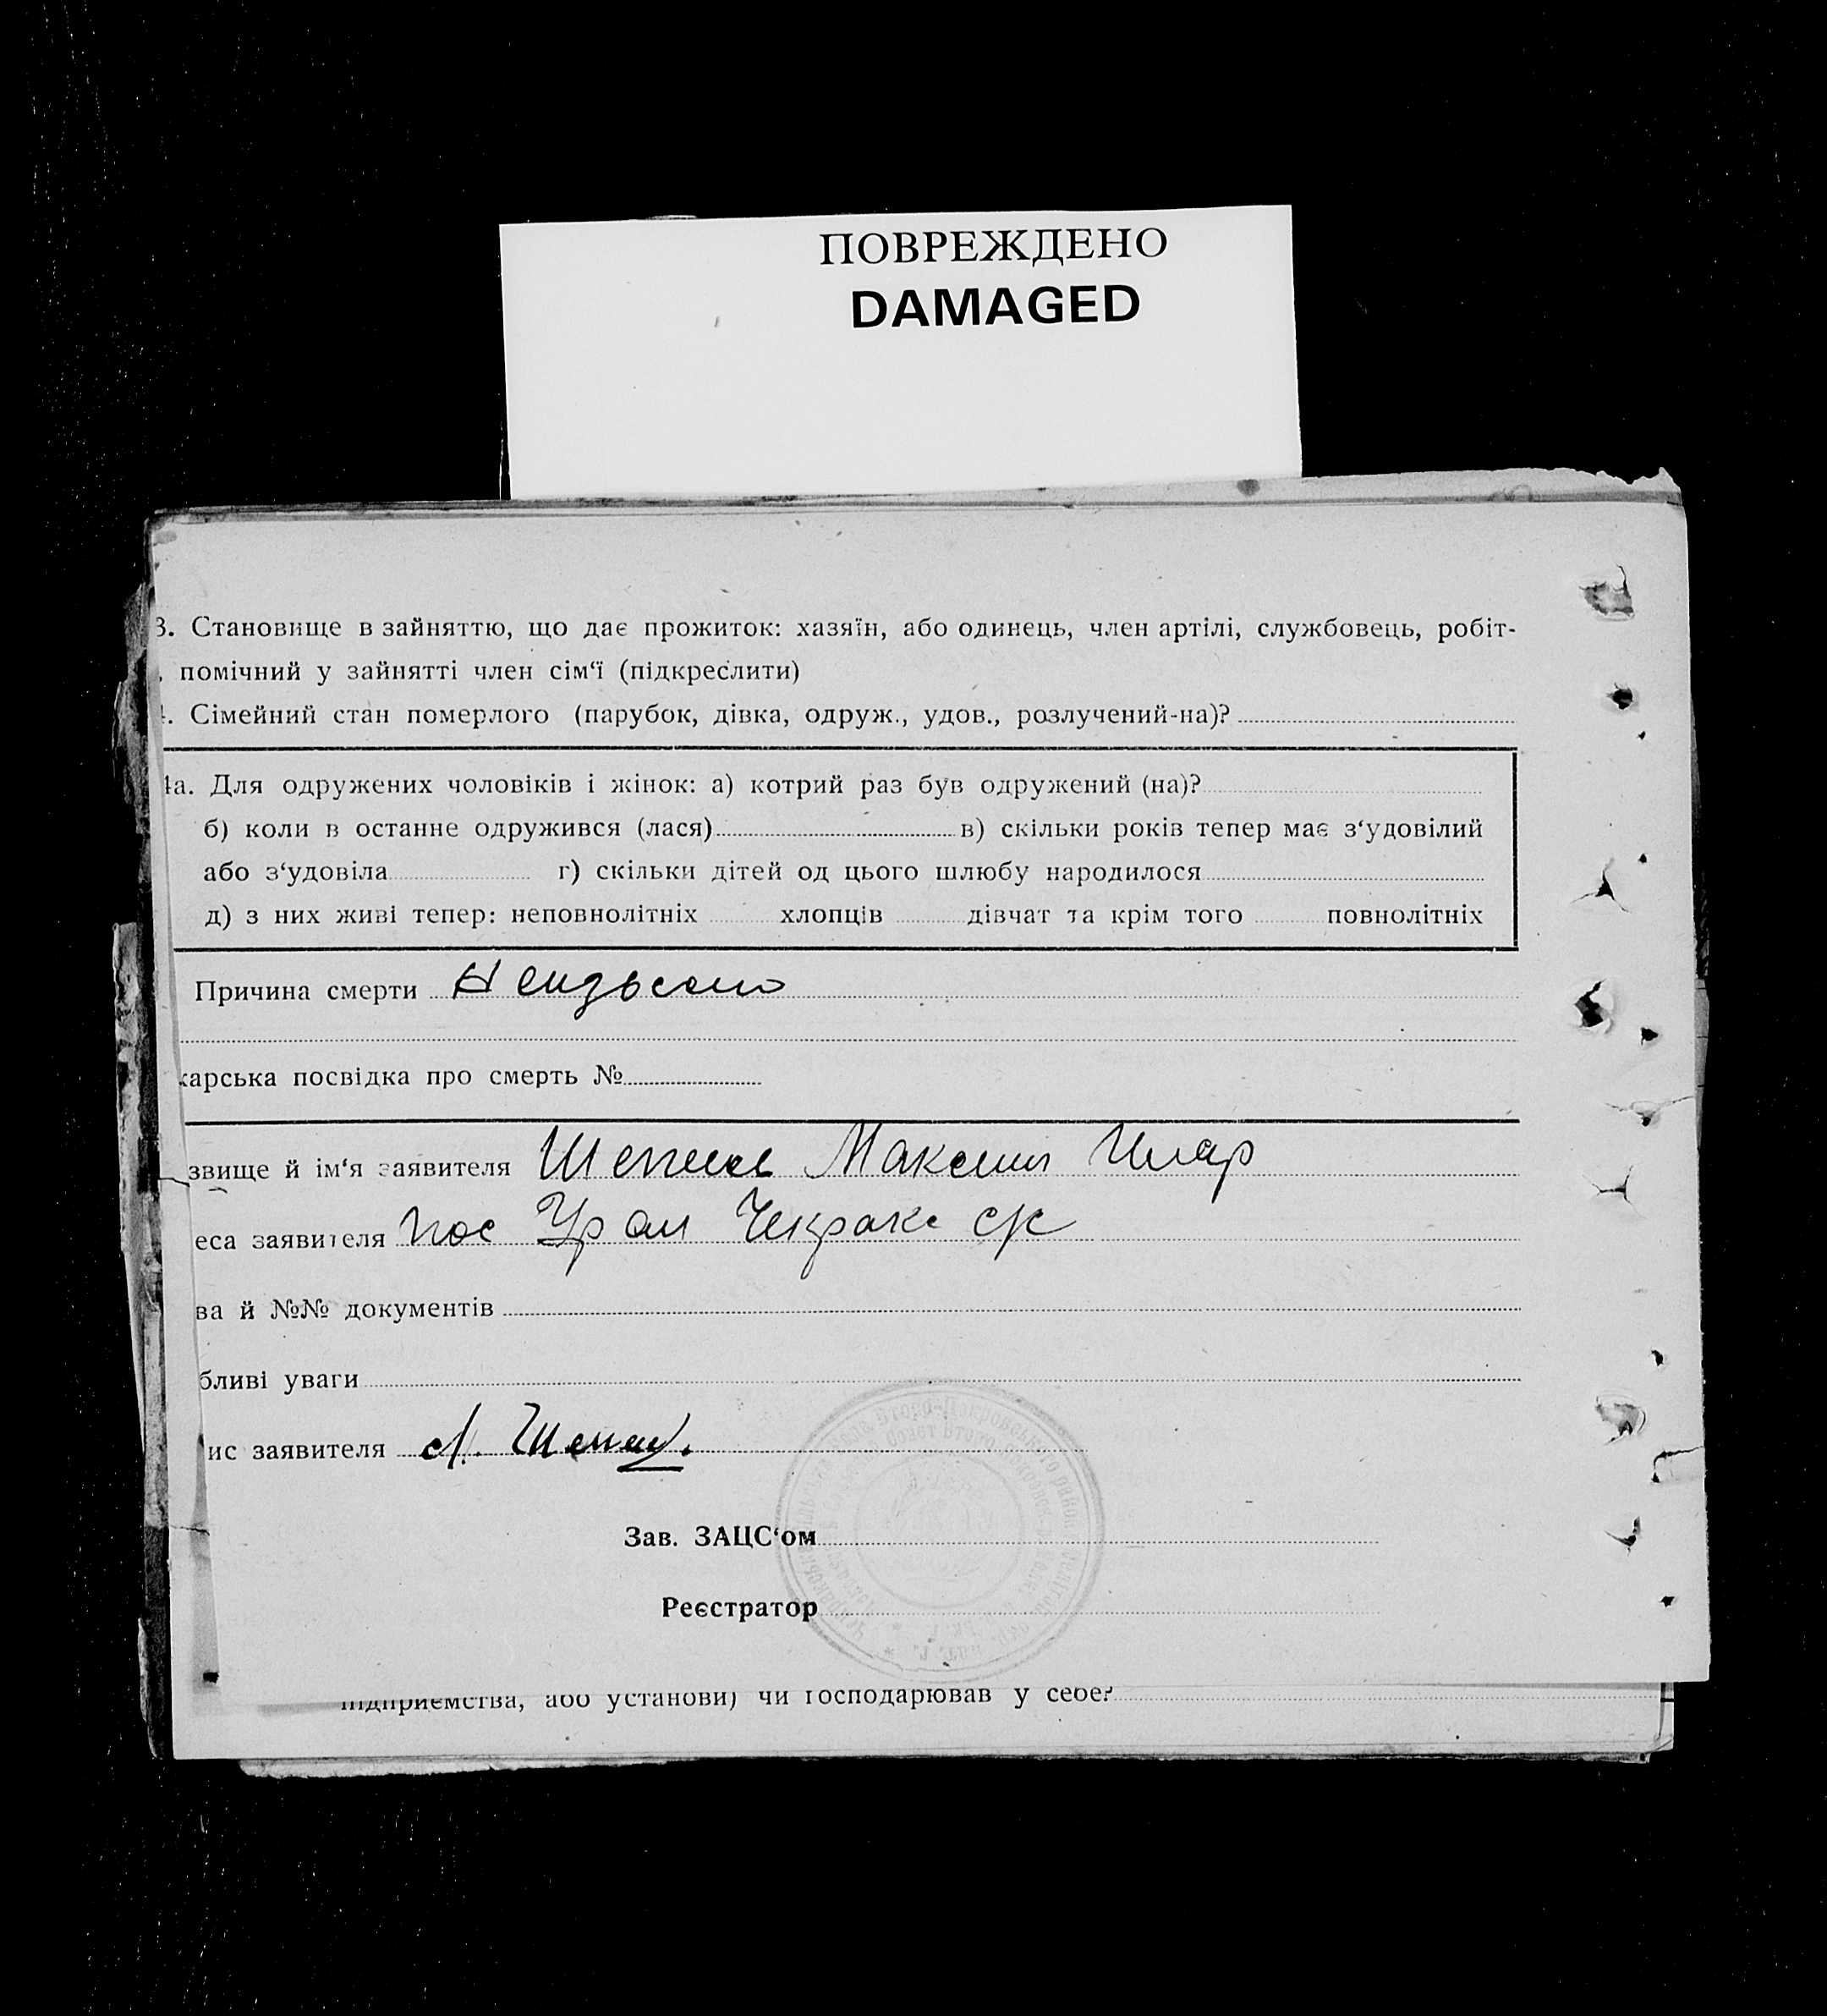 ПОВРЕЖДЕНО
DAMAGED
3. Становище в зайняттю, що дає прожиток: хазяїн, або одинець, член артілі, службовець, робіт-
, помічний у зайнятті член сім‘ї (підкреслити)
4. Сімейний стан померлого (парубок, дівка, одруж., удов., розлучений-на)?
4а. Для одружених чоловіків і жінок: а) котрий раз був одружений (на)?
б) коли в останне одружився (лася) в) скільки років тепер має з‘удовілий
або з‘удовіла г) скільки дітей од цього шлюбу народилося
д) з них живі тепер: неповнолітніх хлопців дівчат та крім того повнолітніх
Причина смерти
карська посвідка про смерть №
звище й ім‘я заявителя Максим
еса заявителя пос Урал с/с
ва й №№ документів
бливі уваги
ис заявителя
Зав. ЗАЦС‘ом
Реєстратор
підприємства, або установи) чи господарював у себе?